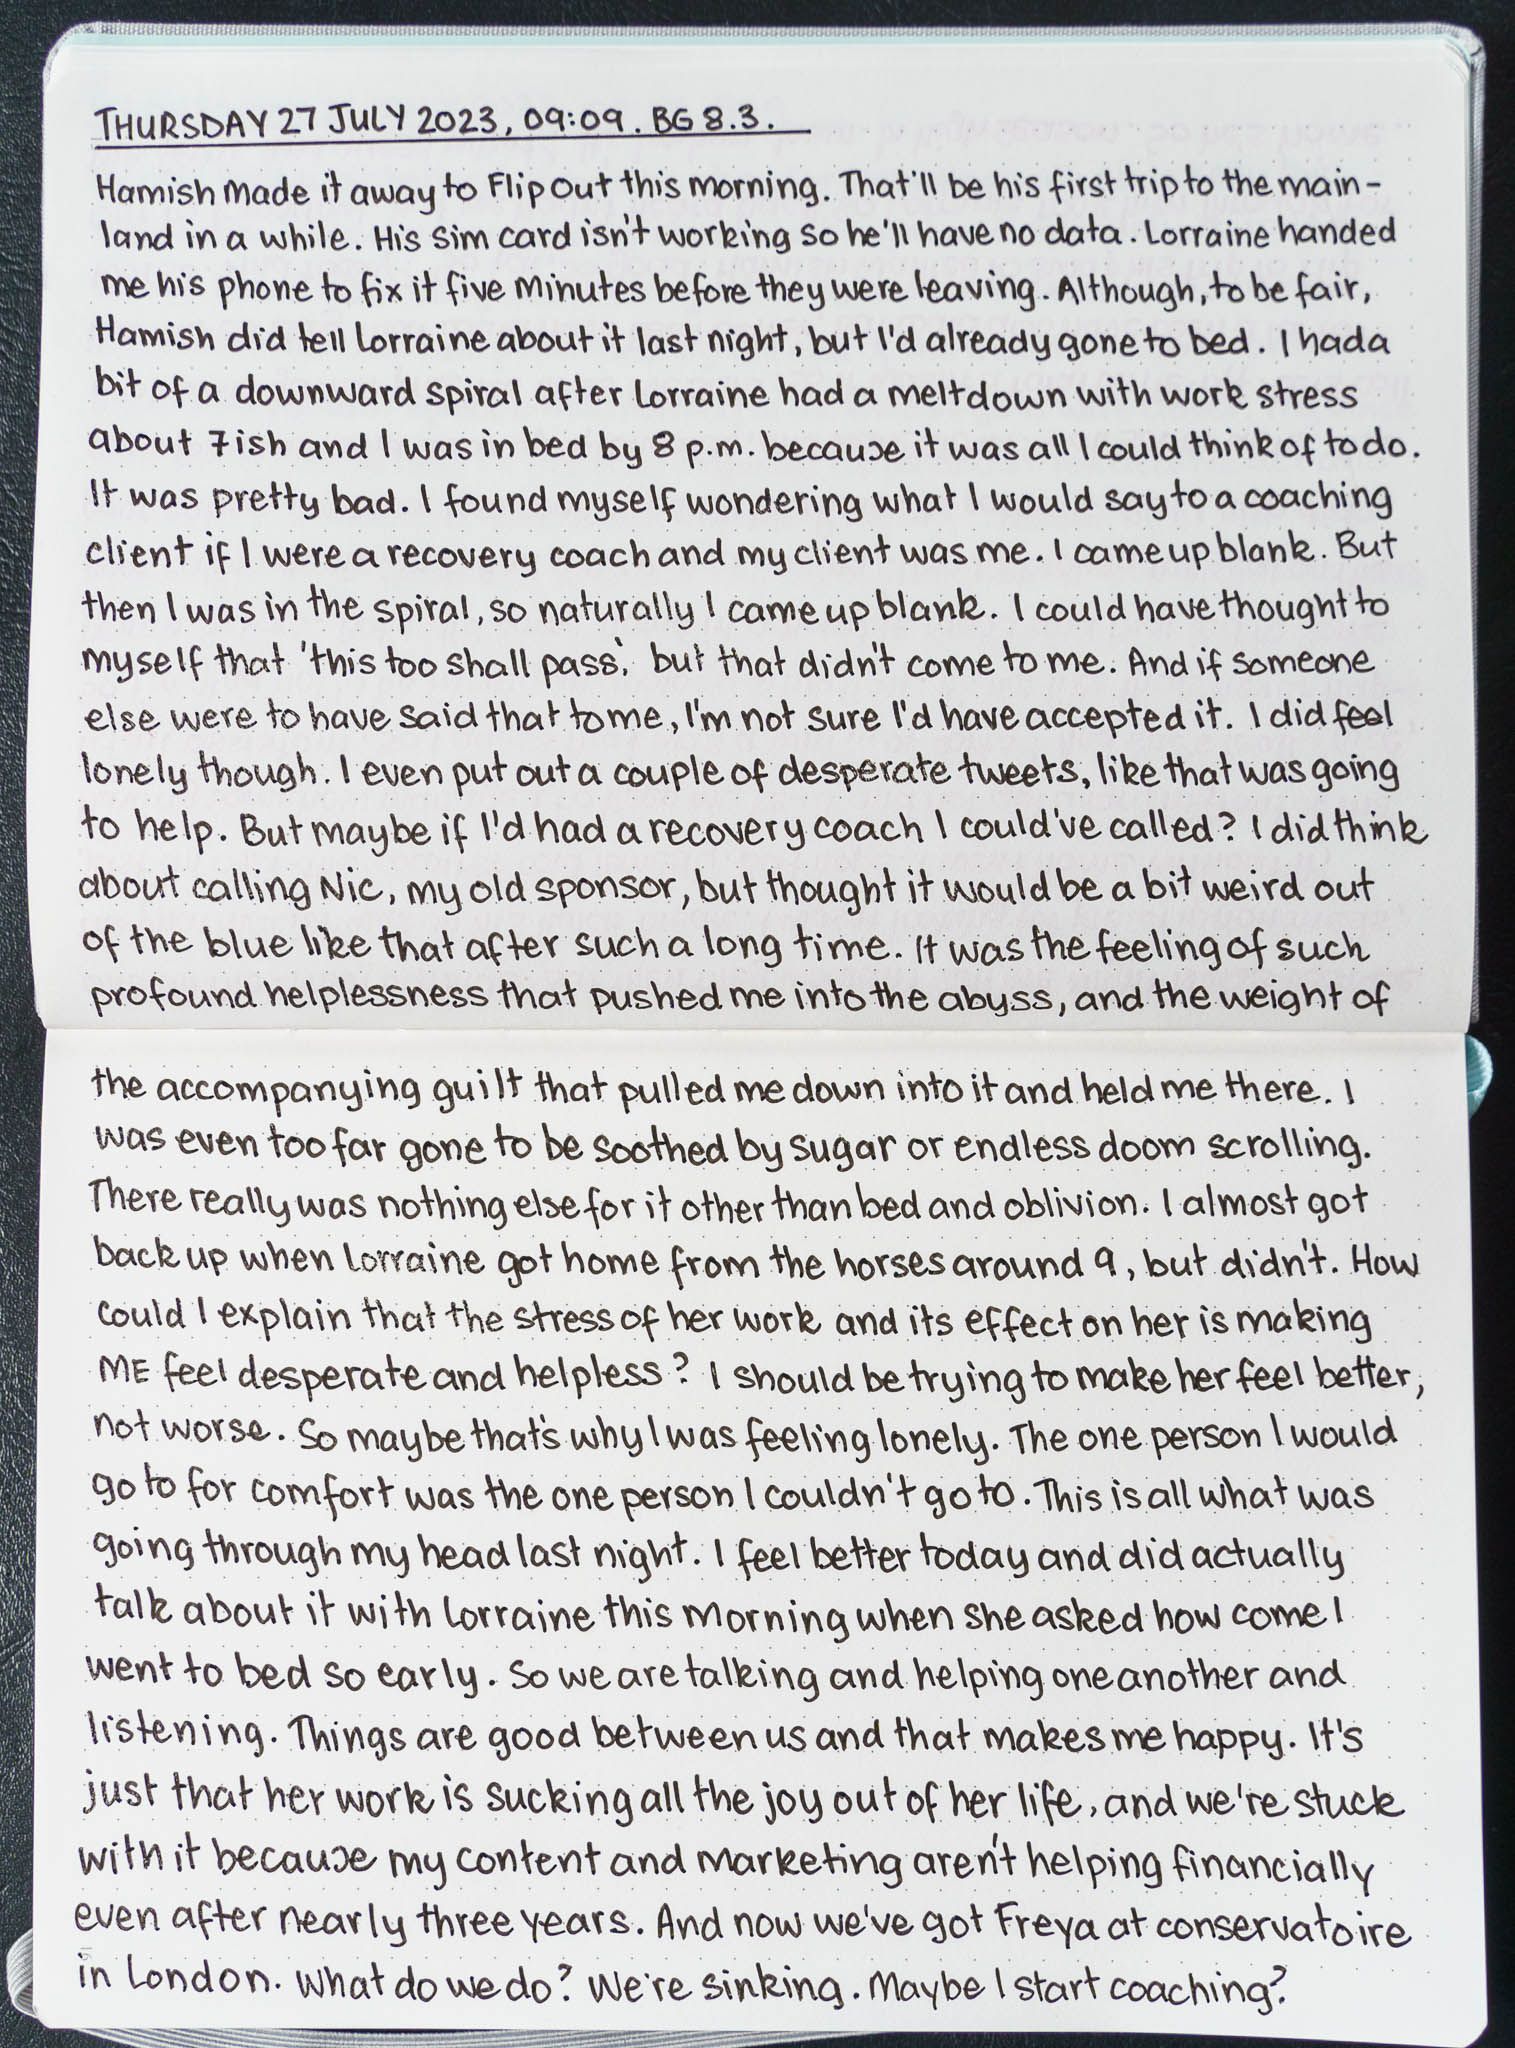 THURSDAY 27 JULY 2023, 09:09. BG 8.3.
Hamish made it away to Flip Out this morning. That'll be his first trip to the main-
land in a while. His sim card isn't working so he'll have no data. Lorraine handed
me his phone to fix it five minutes before they were leaving. Although, to be fair,
Hamish did tell Lorraine about it last night, but I'd already gone to bed. I had a
bit of a downward spiral after Lorraine had a meltdown with work stress
about 7ish and I was in bed by 8 p.m. because it was all I could think of to do.
It was pretty bad. I found myself wondering what I would say to a coaching
client if I were a recovery coach and my client was me. I came up blank. But
then I was in the spiral, so naturally I came up blank. I could have thought to
myself that 'this too shall pass', but that didn't come to me. And if someone
else were to have said that to me, I'm not sure I'd have accepted it. I did feel
lonely though. I even put out a couple of desperate tweets, like that was going
to help. But maybe if I'd had a recovery coach I could've called? I did think
about calling Nic, my old sponsor, but thought it would be a bit weird out
of the blue like that after such a long time. It was the feeling of such
profound helplessness that pushed me into the abyss, and the weight of
the accompanying guilt that pulled me down into it and held me there. I
was even too far gone to be soothed by sugar or endless doom scrolling.
There really was nothing else for it other than bed and oblivion. I almost got
back up when Lorraine got home from the horses around 9, but didn't. How
could I explain that the stress of her work and its effect on her is making
ME feel desperate and helpless? I should be trying to make her feel better,
not worse. So maybe that's why I was feeling lonely. The one person I would
go to for comfort was the one person I couldn't go to. This is all what was
going through my head last night. I feel better today and did actually
talk about it with Lorraine this morning when she asked how come I
went to bed so early. So we are talking and helping one another and
listening. Things are good between us and that makes me happy. It's
just that her work is sucking all the joy out of her life, and we're stuck
with it because my content and marketing aren't helping financially
even after nearly three years. And now we've got Freya at conservatoire
in London. What do we do? We're sinking. Maybe I start coaching?